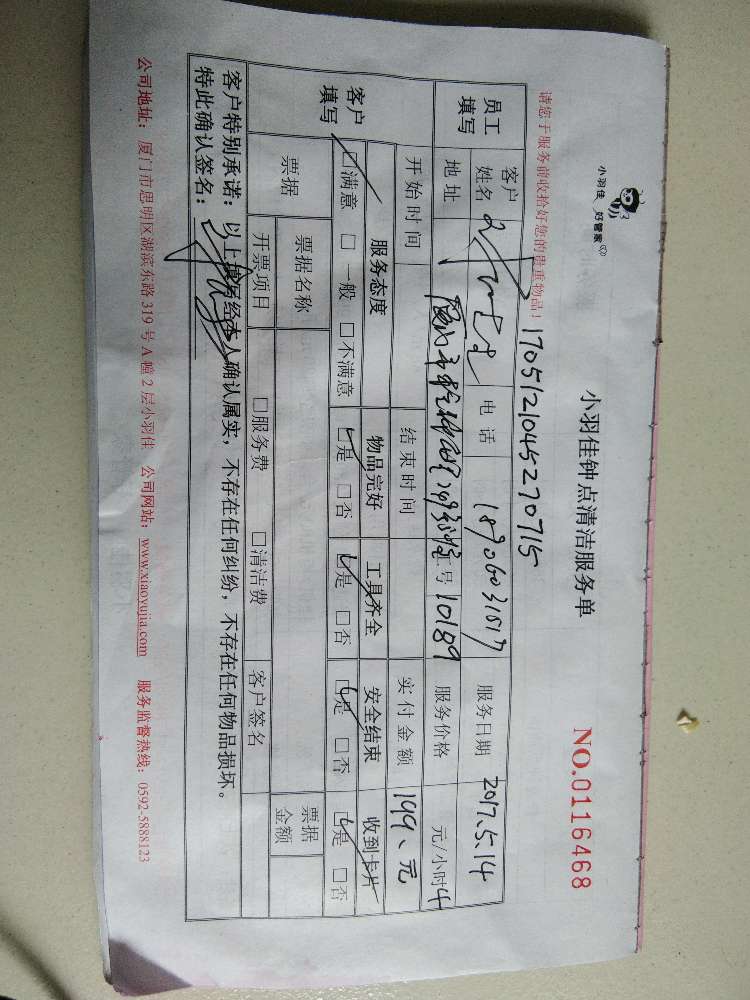 小羽佳 好管家
小羽佳钟点清洁服务单
NO.0116468
请您于服务前收拾好您的贵重物品！
1705121045270715
员工填写 客户姓名 电话 服务日期 2017.5.14
地址 号 10189 服务价格 元/小时 4
客户填写 开始时间 结束时间 实付金额 199、元
服务态度 物品完好 工具齐全 安全结束 收到卡片
□满意 □一般 □不满意 □是 □否 □是 □否 □是 □否 □是 □否
票据 票据名称 票据金额
开票项目 □服务费 □清洁费 客户签名
客户特别承诺：以上 经本人确认属实，不存在任何纠纷，不存在任何物品损坏。
特此确认签名：
公司地址：厦门市思明区湖滨东路319号A幢2层小羽佳 公司网站：www.xiaoyujia.com 服务监督热线：0592-5888123